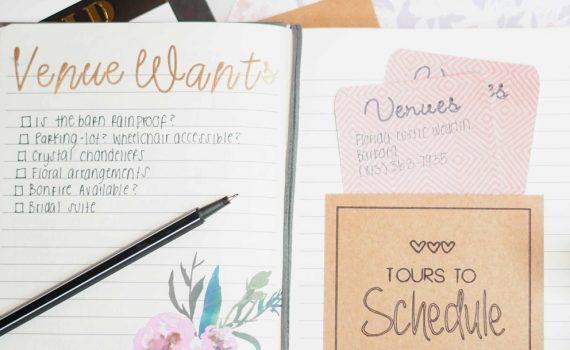 Venue Wants
Is the barn rainproof?
Parking-lot? Wheelchair accessible?
Crystal chandeliers
Floral arrangements
Bonfire Available?
Bridal suite
Venues
Florida rustic
Barbara
(813) 363-7935
TOURS TO
Schedule